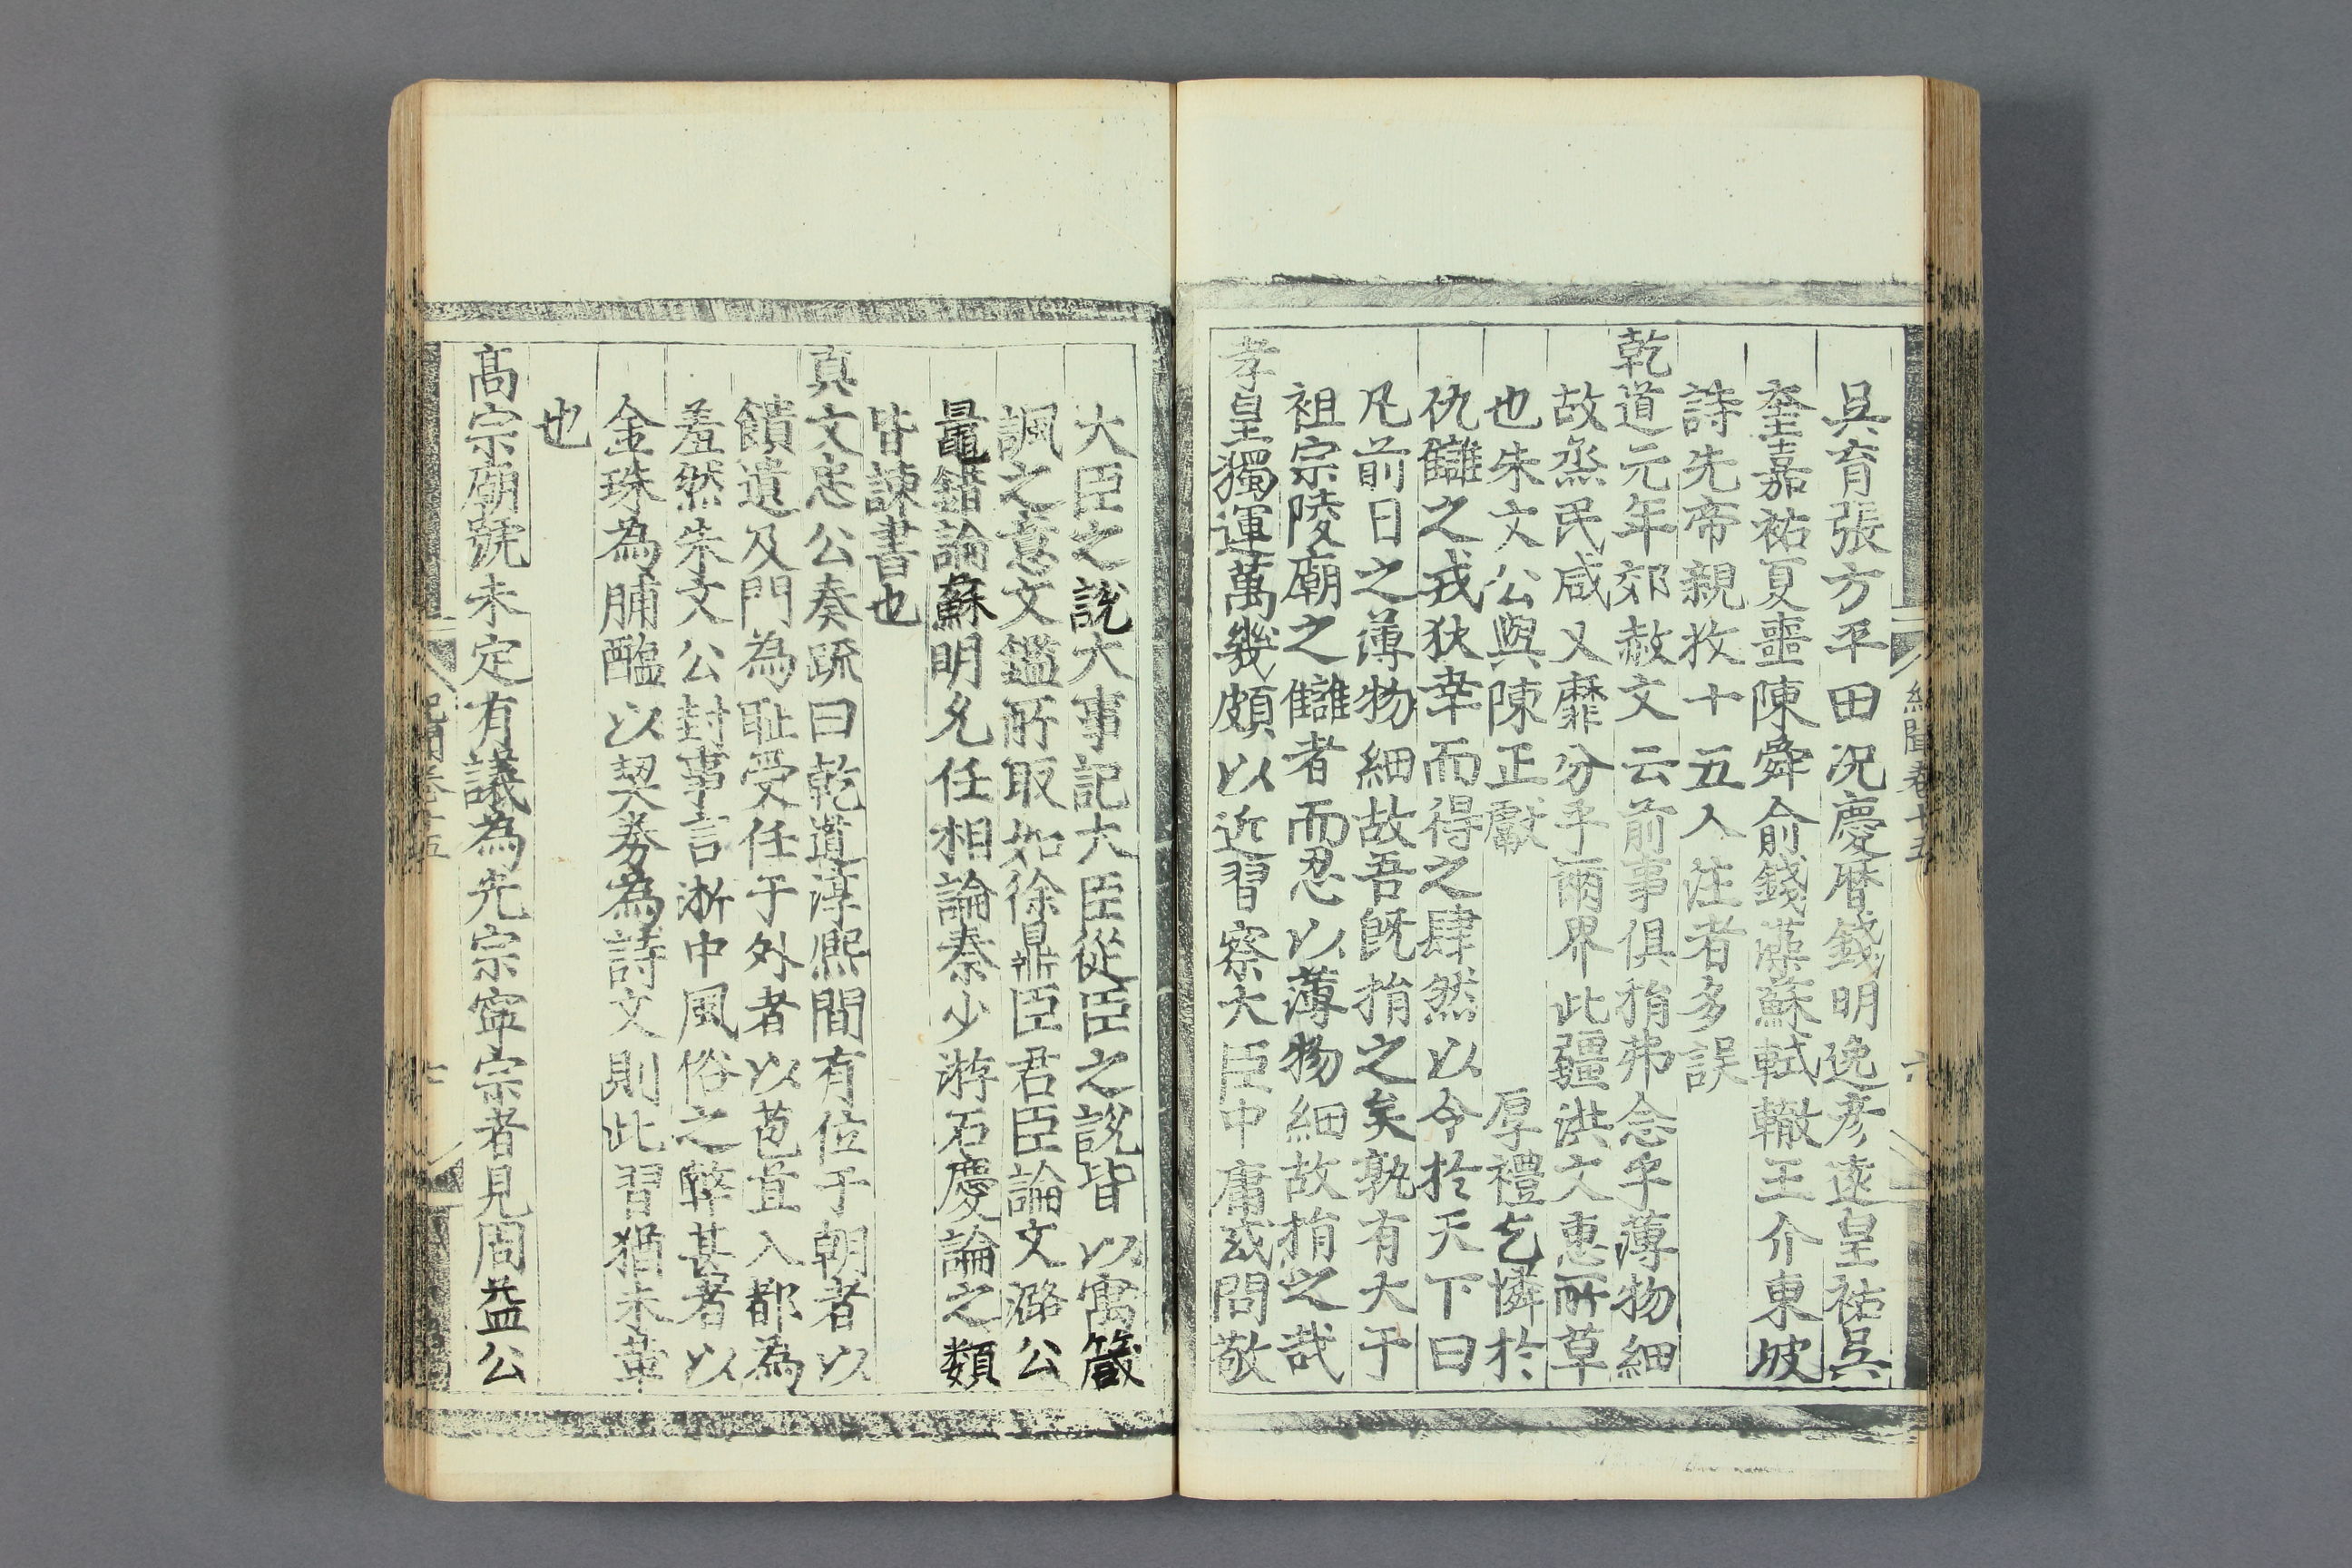 吳育張方平田況慶曆錢明逸彥遠皇祐吳
奎嘉祐夏噩陳舜俞錢藻蘇軾轍王介東坡
詩先帝親收十五人注者多誤
乾道元年郊赦文云前事俱捐弗念乎薄物細
故烝民咸乂靡分乎爾界此疆洪文惠所草
也朱文公與陳正獻 厚禮乞憐於
仇讎之戎狄幸而得之肆然以令於天下曰
凡前日之薄物細故吾既捐之矣孰有大于
祖宗陵廟之讎者而忍以薄物細故捐之哉
孝皇獨運萬幾頗以近習察大臣中庸或問敬
大臣之說大事記大臣從臣之說皆以寓箴
諷之意文鑑所取如徐鼎臣君臣論文潞公
鼂錯論蘇明允任相論秦少游石慶論之類
皆諫書也
真文忠公奏疏曰乾道淳熙間有位于朝者以
饋遺及門為恥受任于外者以苞苴入都為
羞然朱文公封事言浙中風俗之弊甚者以
金珠為脯醢以契券為詩文則此習猶未革
也
高宗廟號未定有議為光宗寧宗者見周益公
紀聞卷十五
六
紀聞卷十五
七